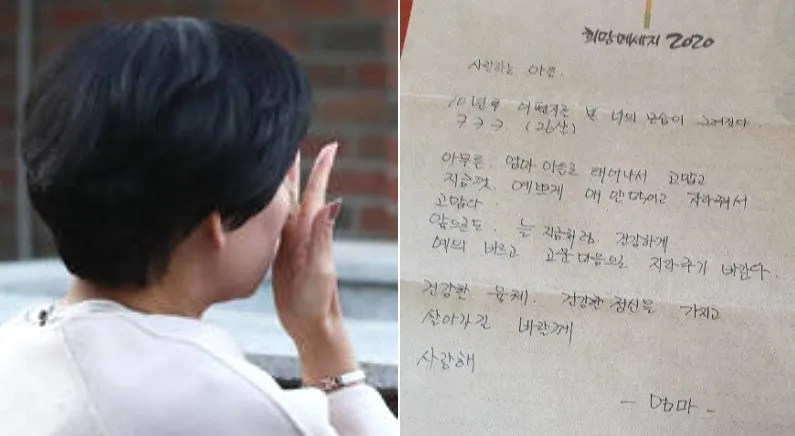 희망메세지 2020
사랑하는 아들.
10년후 이 편지를 본 너의 모습이 그려진다
ㅋㅋㅋ (26살)
아무튼. 엄마 아들로 태어나서 고맙고
지금껏. 예쁘게 애 안먹이고 자라줘서
고맙다
앞으로도. 늘 지금처럼. 건강하게
예의 바르고 고운 마음으로 자라주기 바란다.
건강한 육체. 건강한 정신을 가지고
살아가길 바란게
사랑해
- 엄마 -